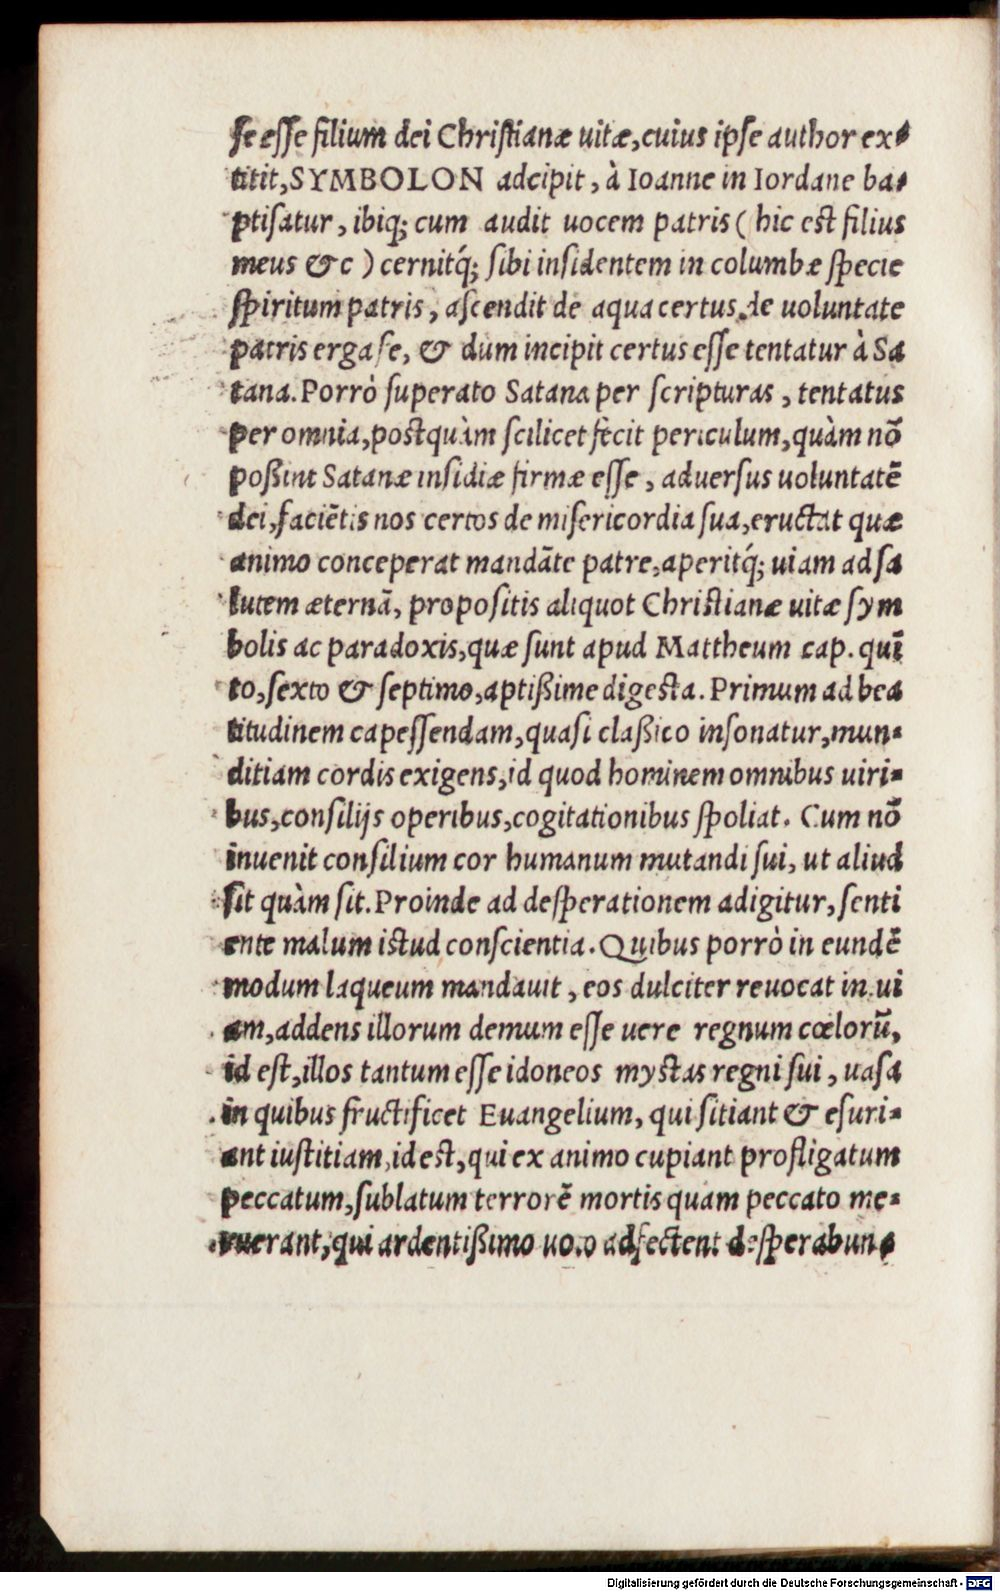 ſe eſſe filium dei Chriſtianæ uitæ,cuius ipſe author ex-
titit,SYMBOLON adcipit, à Ioanne in Iordane ba-
ptiſatur, ibiq; cum audit uocem patris ( hic est filius
meus &c ) cernitq́; ſibi inſidentem in columbæ ſpecie
ſpiritum patris, aſcendit de aqua certus de uoluntate
patris erga ſe, & dum incipit certus eſſe tentatur à Sa
tana. Porrò ſuperato Satana per ſcripturas, tentatus
per omnia,postquàm ſcilicet fecit periculum,quàm nō
poßint Satanæ inſidiæ firmæ eſſe, aduerſus uoluntatē
dei,faciētis nos certos de miſericordia ſua,eructat quæ
animo conceperat mandāte patre,aperitq́; uiam ad ſa
lutem æternā, propoſitis aliquot Christianæ uitæ ſym
bolis ac paradoxis,quæ ſunt apud Mattheum cap. quī
to,ſexto & ſeptimo,aptißime digesta. Primum ad bea
titudinem capeſſendam,quaſi claßico inſonatur,mun-
ditiam cordis exigens,id quod hominem omnibus uiri-
bus,conſilijs operibus,cogitationibus ſpoliat. Cum nō
inuenit conſilium cor humanum mutandi ſui, ut aliud
ſit quàm ſit. Proinde ad deſperationem adigitur, ſenti
ente malum istud conſcientia. Quibus porrò in eundē
modum laqueum mandauit, eos dulciter reuocat in ui
am,addens illorum demum eſſe uere regnum cœlorū,
id est,illos tantum eſſe idoneos mystas regni ſui, uaſa
in quibus fructificet Euangelium, qui ſitiant & eſuri-
ant iustitiam,id est,qui ex animo cupiant profligatum
peccatum,ſublatum terrorē mortis quam peccato me-
ruerant,qui ardentißimo uoto adfectent deſperabun-